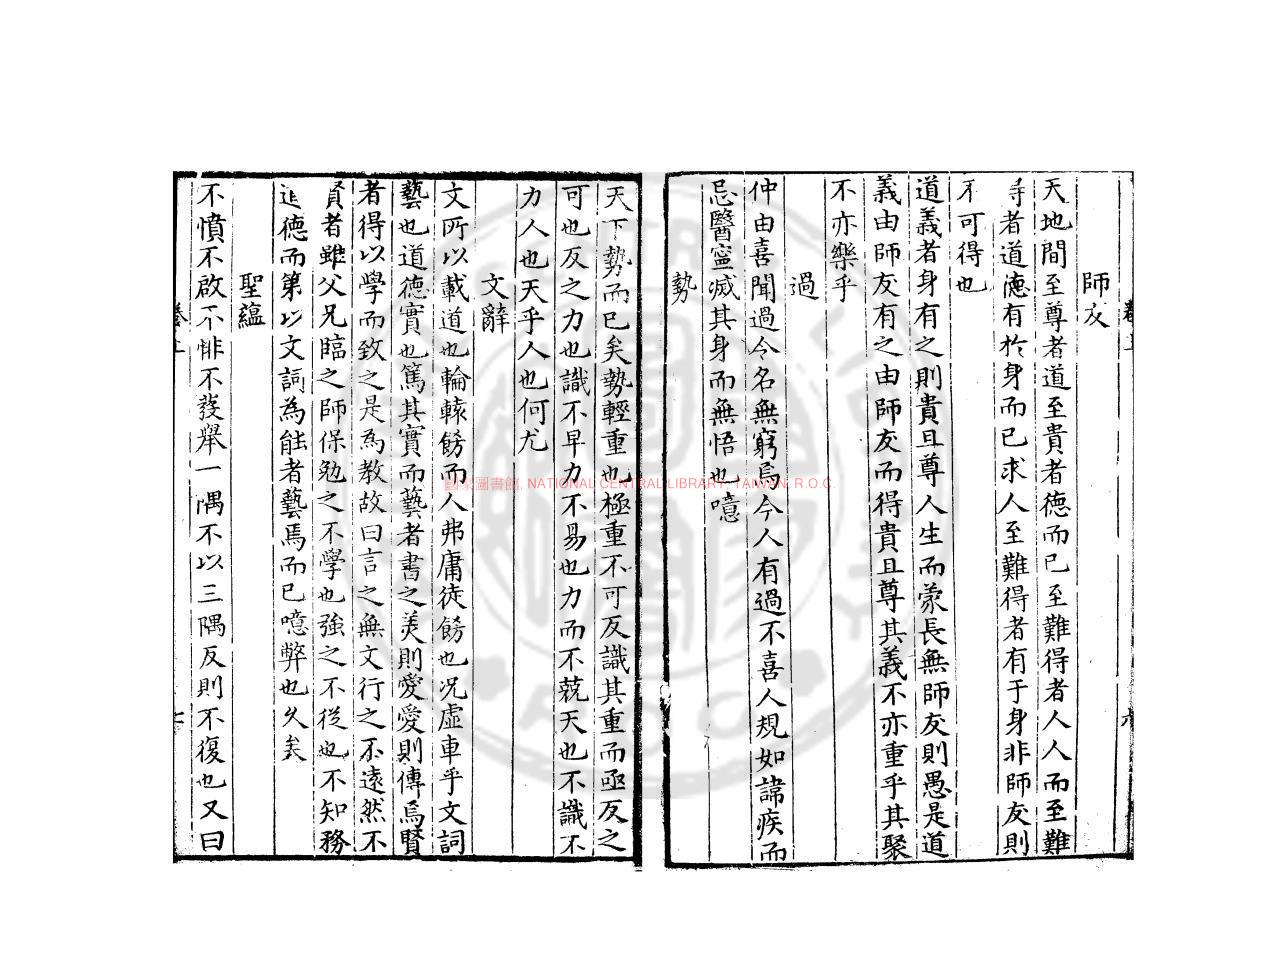 師友
天地間至尊者道至貴者德而已至難得者人人而至難
得者道德有於身而已求人至難得者有于身非師友則
不可得也
道義者身有之則貴且尊人生而蒙長無師友則愚是道
義由師友有之由師友而得貴且尊其義不亦重乎其聚
不亦樂乎
過
仲由喜聞過令名無窮焉今人有過不喜人規如諱疾而
忌醫寧滅其身而無悟也噫
勢
天下勢而已矣勢輕重也極重不可反識其重而亟反之
可也反之力也識不早力不易也力而不兢天也不識不
力人也天乎人也何尤
文辭
文所以載道也輪轅餝而人弗庸徒餝也况虛車乎文詞
藝也道德實也篤其實而藝者書之美則愛愛則傳焉賢
者得以學而致之是為教故曰言之無文行之不遠然不
賢者雖父兄臨之師保勉之不學也強之不從也不知務
道德而第以文詞為能者藝焉而已噫弊也久矣
聖蘊
不憤不啟不悱不發舉一隅不以三隅反則不復也又曰
國家圖書館, NATIONAL CENTRAL LIBRARY, TAIWAN, R.O.C